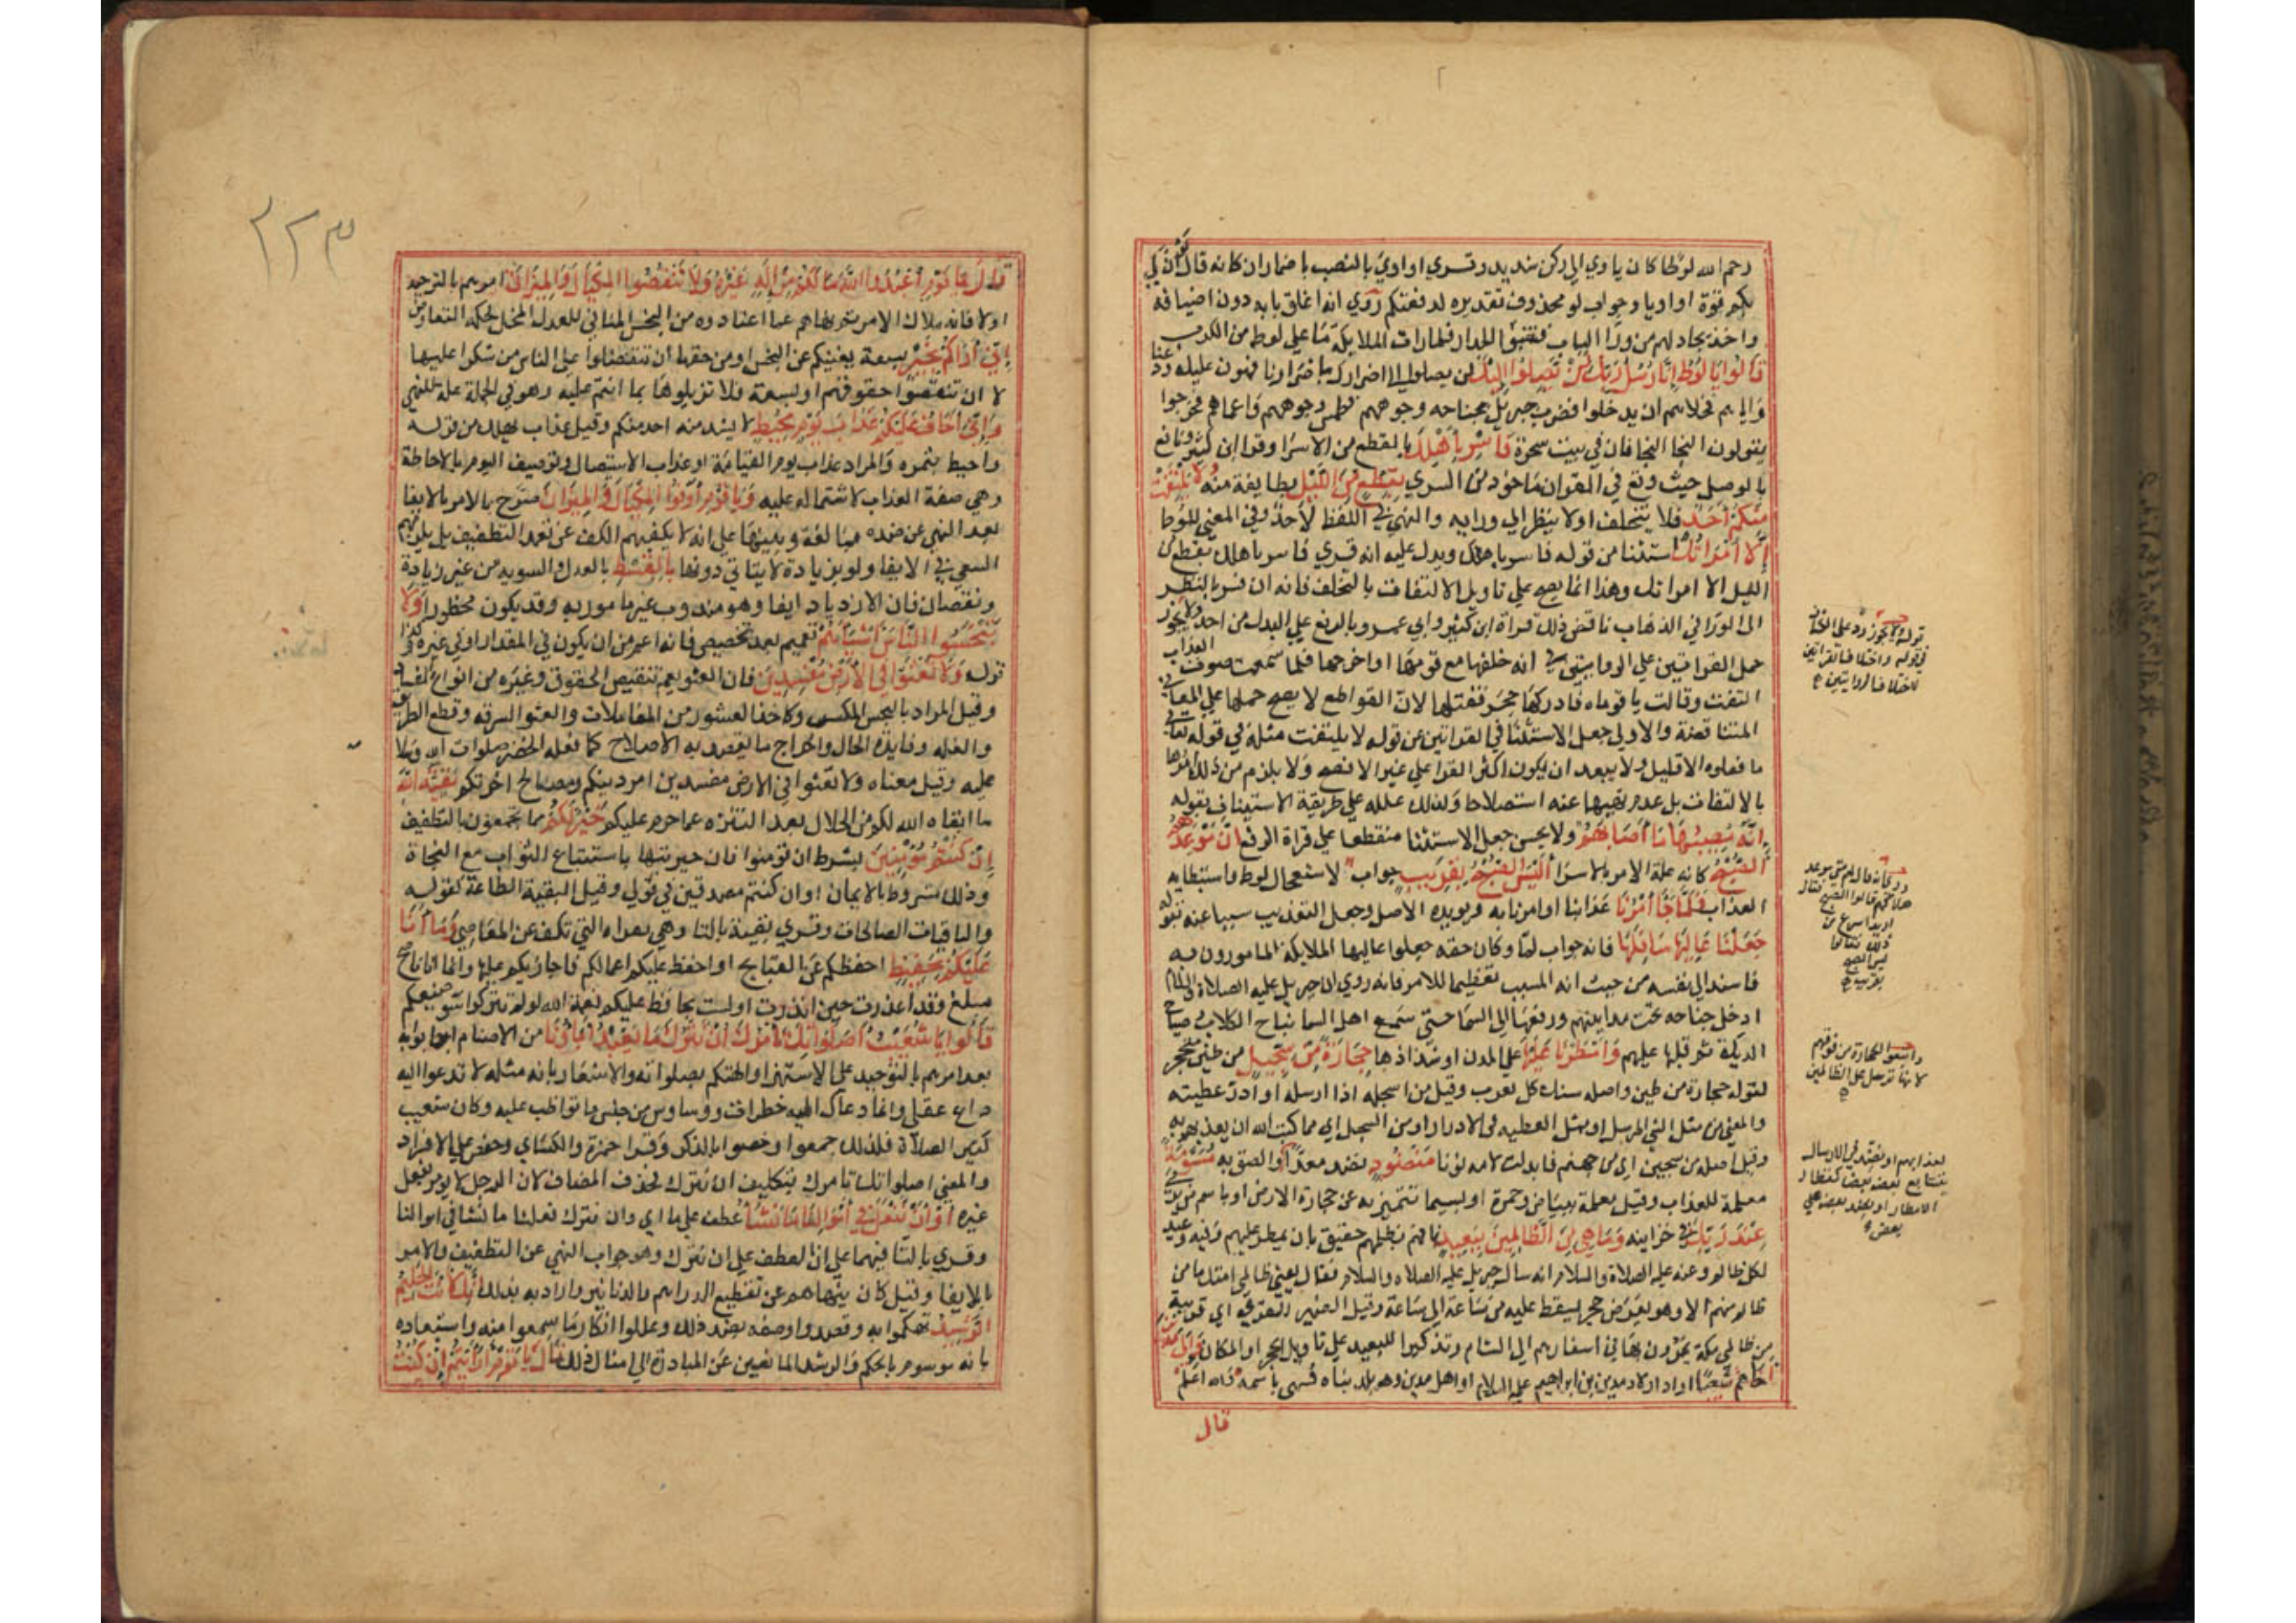 رحم الله لوطا كان ياوي الي ركن شديد وقري او اوي بالنصب باضمار ان كانه قال لو ان لي
بكم قوة او اويا وجواب لو محذوف تقديره لدفعتكم روي انه اغلق بابه دون اضيافه
واخذ يجادلهم من ورا الباب فتسوروا الجدار فلما رات الملايكة ما علي لوط من الكرب
قالوا يا لوط انا رسل ربك لن يصلوا اليك لن يصلوا الي اضرارك باضرارنا فهون عليك ودعنا
واياهم فخلاهم ان يدخلوا فضرب جبريل بجناحه وجوههم فطمس وجوههم فاعماهم فخرجوا
يقولون النجا النجا فان في بيت سحرة فاسر باهلك بالقطع من الاسرا وقرا ابن كثير ونافع
بالوصل حيث وقع في القران ماخوذ من السري بقطع من الليل بطايفة منه ولا يلتفت
منكم احد فلا يتخلف او لا ينظر الي ورايه والنهي في اللفظ لاحد وفي المعني للوط
الا امراتك استثنا من قوله فاسر باهلك ويدل عليه انه قري فاسر باهلك بقطع من
الليل الا امراتك وهذا انما يصح علي تاويل الالتفات بالتخلف فانه ان فسر بالنظر
الي الورا في الذهاب ناقض ذلك قراة ابن كثير وابي عمرو بالرفع علي البدل من احد ولا يجوز
حمل القراتين علي الروايتين في انه خلفها مع قومها او اخرجها فلما سمعت صوت العذاب
التفتت وقالت يا قوماه فادركها حجر فقتلها لان القواطع لا يصح حملها علي المعاني
المتناقضة والاولي جعل الاستثنا في القراتين من قوله لا يلتفت مثله في قوله تعالي
ما فعلوه الا قليل ولا يبعد ان يكون اكثر القرا علي غير الافصح ولا يلزم من ذلك امرها
بالالتفات بل عدم نهيها عنه استصلاحا ولذلك علله علي طريقة الاستيناف بقوله
انه مصيبها ما اصابهم ولا يحسن جعل الاستثنا منقطعا علي قراة الرفع ان موعدهم
الصبح كانه علة الامر بالاسرا اليس الصبح بقريب جواب لاستعجال لوط واستبطايه
العذاب فلما جا امرنا عذابنا او امرنا به ويويده الاصل وجعل التعذيب سببا عنه بقوله
جعلنا عاليها سافلها فانه جواب لما وكان حقه جعلوا عاليها الملايكة المامورون به
فاسند الي نفسه من حيث انه المسبب تعظيما للامر فانه روي ان جبريل عليه الصلاة والسلام
ادخل جناحه تحت مداينهم ورفعها الي السما حتي سمع اهل السما نباح الكلاب وصياح
الديكة ثم قلبها عليهم وامطرنا عليها علي المدن او شذاذها حجارة من سجيل من طين متحجر
لقوله حجارة من طين واصله سنك كل فعرب وقيل من اسجله اذا ارسله او ادر عطيته
والمعني من مثل الشي المرسل او مثل العطيه في الادرار او من السجل اي مما كتب الله ان يعذبهم به
وقيل اصله من سجين اي من جهنم فابدلت لامه نونا منضود نضد معدا والصق به مسومة
معلمة للعذاب وقيل معلمة ببياض وحمرة او بسيما تتميز به عن حجارة الارض او باسم من
عند ربك في خزاينه وما هي من الظالمين ببعيد فانهم بظلمهم حقيق بان يمطر عليهم وفيه وعيد
لكل ظالم وعنه عليه الصلاة والسلام انه سال جبريل عليه الصلاه والسلام فقال يعني ظالمي امتك ما من
ظالم منهم الا وهو بعرض حجر يسقط عليه من ساعة الي ساعة وقيل الضمير للقري اي قريبة
من ظالمي مكة يمرون بها في اسفارهم الي الشام وتذكير البعيد علي تاويل الحجر او المكان والي مدين
اخاهم شعيبا اراد اولاد مدين بن ابراهيم عليه السلام او اهل مدين وهو بلد بناه فسمي باسمه والله اعلم
قال
قوله لا يجوز رد علي الكشاف
في قوله واختلاف القراتين
لاختلاف الروايتين
روي انه قال لهم متي موعد
هلاكهم قالوا الصبح فقال
اريد اسرع من
ذلك فقالوا
اليس الصبح
بقريب
الحجارة من فوقهم
لانها ترسل علي الظالمين
لعذابهم او نضد في الارسال
يتتابع بعضه بعض كقطار
الامطار او نضد بعضه علي
بعض
٢٢٣
قال يا قوم اعبدوا الله ما لكم من اله غيره ولا تنقصوا المكيال والميزان امرهم بالتوحيد
اولا فانه ملاك الامر ثم نهاهم عما اعتادوه من البخس المنافي للعدل المخل بحكمة التعاوض
اني اراكم بخير بسعة يغنيكم عن البخس او من حقها ان تتفضلوا علي الناس من شكرا عليها
لا ان تنقصوا حقوقهم او بسعة فلا تزيلوها بما انتم عليه وهو في الجملة علة للنهي
واني اخاف عليكم عذاب يوم محيط لا يشذ منه احد منكم وقيل عذاب مهلك من قوله
واحيط بثمره والمراد عذاب يوم القيامة او عذاب الاستيصال وتوصيف اليوم بالاحاطة
وهي صفة العذاب لاشتماله عليه ويا قوم اوفوا المكيال والميزان صرح بالامر بالايفا
بعد النهي عن ضده مبالغة وتنبيها علي انه لا يكفيهم الكف عن تعمد التطفيف بل يلزمهم
السعي في الايفا ولو بزيادة لا يتاتي دونها بالقسط بالعدل والسويه من غير زيادة
ونقصان فان الازدياد ايفا وهو مندوب غير مامور به وقد يكون محظورا ولا
تبخسوا الناس اشياهم تعميم بعد تخصيص فانه اعم من ان يكون في المقدار او في غيره وكذا
قوله ولا تعثوا في الارض مفسدين فان العثو يعم تنقيص الحقوق وغيره من انواع الفساد
وقيل المراد بالبخس المكس وكاخذ العشور من المعاملات والعثو السرقه وقطع الطريق
والغاره وفايدة الحال واخراج ما يقصد به الاصلاح كما فعله الخضر صلوات الله وسلامه
عليه وقيل معناه ولا تعثوا في الارض مفسدين امر دينكم ومصالح اخرتكم بقية الله
ما ابقاه الله لكم من الحلال بعد التنزه عما حرم عليكم خير لكم مما تجمعون بالتطفيف
ان كنتم مومنين بشرط ان تومنوا فان خيريتها باستتباع الثواب مع النجاة
وذلك مشروط بالايمان او ان كنتم مصدقين في قولي وقيل البقية الطاعة كقوله
والباقيات الصالحات وقري تقية بالتا وهي تقواه التي تكف عن المعاصي وما انا
عليكم بحفيظ احفظكم عن القبايح او احفظ عليكم اعمالكم فاجازيكم عليها وانما انا ناصح
مبلغ وقد اعذرت حين انذرت او لست بحافظ عليكم نعمة الله لو لم تتركوا سو صنيعكم
قالوا يا شعيب اصلواتك تامرك ان نترك ما يعبد اباونا من الاصنام اجابوا به
بعد امرهم بالتوحيد علي الاستهزا والتهكم بصلواته والاشعار بانه مثله لا تدعوا اليه
داع عقلي وانما دعاك اليه خطرات ووساوس من جنس ما تواظب عليه وكان شعيب
كثير الصلاة فلذلك جمعوا وخصوا بالذكر وقرا حمزة والكساي وحفص علي الافراد
والمعني اصلواتك تامرك بتكليف ان نترك فحذف المضاف لان الرجل لا يومر بفعل
غيره او ان نفعل في اموالنا ما نشا عطف علي ما اي وان نترك فعلنا ما نشا في اموالنا
وقري بالتا فيهما علي ان العطف علي ان نترك وهو جواب النهي عن التطفيف والامر
بالايفا وقيل كان ينهاهم عن تقطيع الدراهم والدنانير واراد به بذلك انك لانت الحليم
الرشيد تهكموا به وقصدوا وصفه بضد ذلك وعللوا انكار ما سمعوا منه واستبعاده
بانه موسوم بالحكم والرشد المانعين عن المبادرة الي امثال ذلك قال يا قوم ارايتم ان كنت